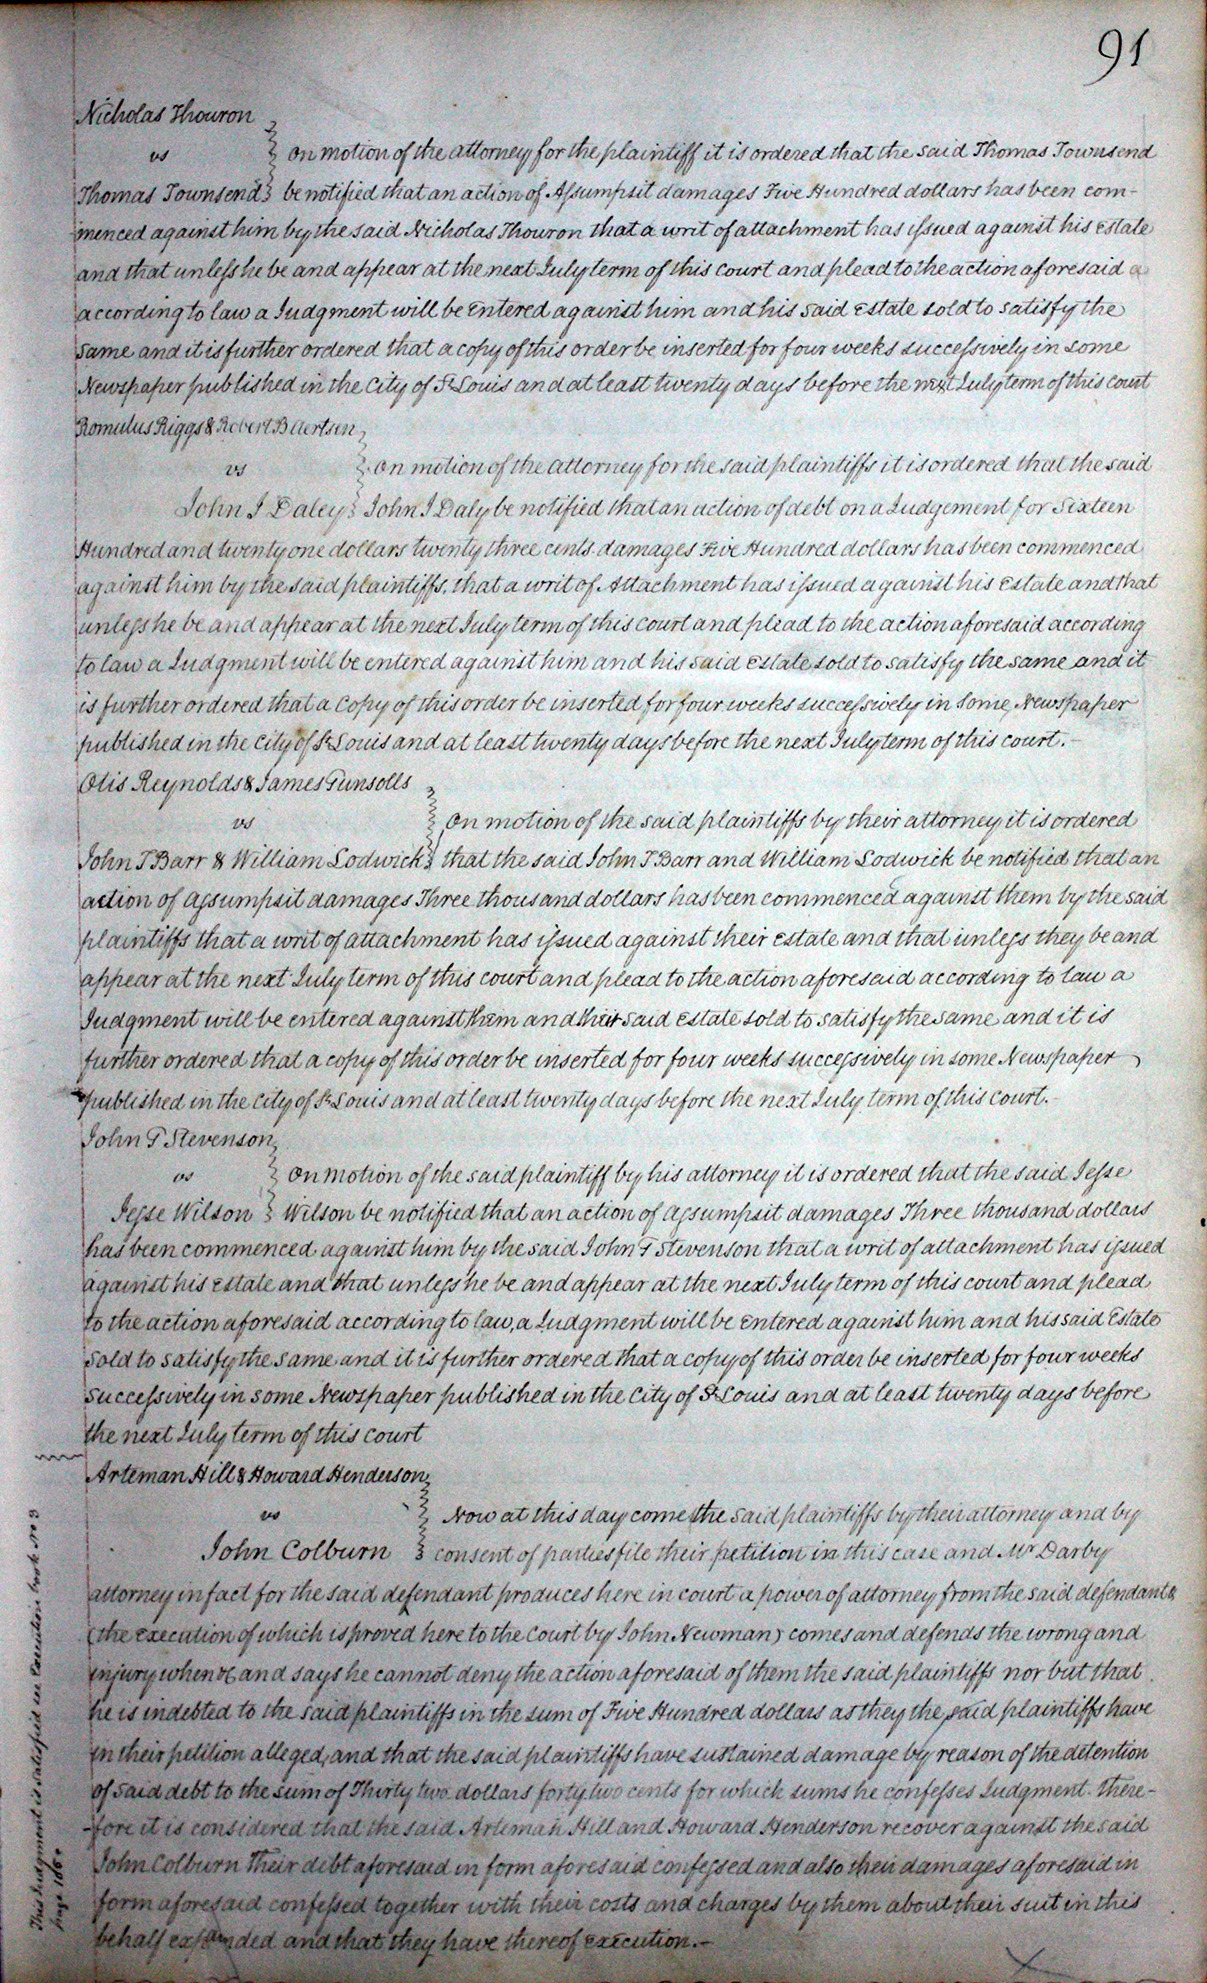 91
Nicholas Thouron
vs
On motion of the attorney for the plaintiff it is ordered that the said Thomas Townsend
Thomas Townsend be notified that an action of Assumpsit damages Five Hundred dollars has been com-
menced against him by the said Nicholas Thouron that a writ of attachment has issued against his Estate
and that unless he be and appear at the next July term of this court and plead to the action aforesaid a
according to law a Judgment will be Entered against him and his said Estate sold to satisfy the
same and it is further ordered that a copy of this order be inserted for four weeks successively in some
Newspaper published in the City of St Louis and at least twenty days before the next July term of this court
Romulus Riggs & Robert B Aertsen
vs
On motion of the attorney for the said plaintiffs it is ordered that the said
John J Daley John J Daly be notified that an action of debt on a Judgement for Sixteen
Hundred and twenty one dollars twenty three cents damages Five Hundred dollars has been commenced
against him by the said plaintiffs, that a writ of Attachment has issued against his Estate and that
unless he be and appear at the next July term of this court and plead to the action aforesaid according
to law a Judgment will be entered against him and his said Estate sold to satisfy the same and it
is further ordered that a Copy of this order be inserted for four weeks successively in some Newspaper
published in the City of St Louis and at least twenty days before the next July term of this court.-
Otis Reynolds & James Gunsolls
vs
On motion of the said plaintiffs by their attorney it is ordered
John T Barr & William Lodwick that the said John T Barr and William Lodwick be notified that an
action of assumpsit damages Three thousand dollars has been commenced against them by the said
plaintiffs that a writ of attachment has issued against their estate and that unless they be and
appear at the next July term of this court and plead to the action aforesaid according to law a
Judgment will be entered against them and their said Estate sold to satisfy the same and it is
further ordered that a copy of this order be inserted for four weeks successively in some Newspaper
published in the City of St Louis and at least twenty days before the next July term of this court.-
John F Stevenson
vs
On motion of the said plaintiff by his attorney it is ordered that the said Jesse
Jesse Wilson Wilson be notified that an action of assumpsit damages Three thousand dollars
has been commenced against him by the said John F Stevenson that a writ of attachment has issued
against his Estate and that unless he be and appear at the next July term of this court and plead
to the action aforesaid according to law, a Judgment will be Entered against him and his said Estate
sold to satisfy the same and it is further ordered that a copy of this order be inserted for four weeks
successively in some Newspaper published in the City of St Louis and at least twenty days before
the next July term of this court
Arteman Hill & Howard Henderson
vs
Now at this day come the said plaintiffs by their attorney and by
John Colburn consent of parties file their petition in this case and Mr Darby
attorney in fact for the said defendant produces here in court a power of attorney from the said defendant &
(the execution of which is proved here to the Court by John Newman) comes and defends the wrong and
injury when &c and says he cannot deny the action aforesaid of them the said plaintiffs nor but that
he is indebted to the said plaintiffs in the sum of Five Hundred dollars as they the said plaintiffs have
in their petition alleged, and that the said plaintiffs have sustained damage by reason of the detention
of said debt to the sum of Thirty two dollars forty two cents for which sums he confesses Judgment. There-
fore it is considered that the said Arteman Hill and Howard Henderson recover against the said
John Colburn their debt aforesaid in form aforesaid confessed and also their damages aforesaid in
form aforesaid confessed together with their costs and charges by them about their suit in this
behalf expended and that they have thereof execution.-
This Judgment is satisfied see Execution book No 3
page 166.